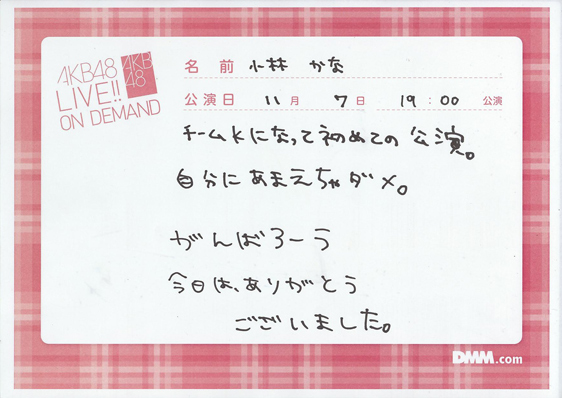 AKB48
LIVE!!
ON DEMAND
AKB
48
名前 小林 かな
公演日 11月 7日 19:00 公演
チームKになって初めての公演。
自分にあまえちゃダメ。
がんばろーう
今日は、ありがとう
ございました。
DMM.com